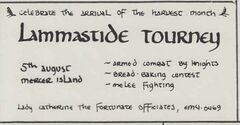 celebrate the arrival of the harvest month
Lammastide Tourney
5th August
Mercer Island
~ armed combat by knights
~ bread-baking contest
~ melee fighting
Lady Catherine the Fortunate officiates,